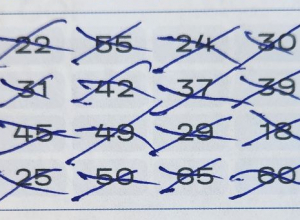 22 55 24 30
31 42 37 39
45 49 29 18
25 50 65 60